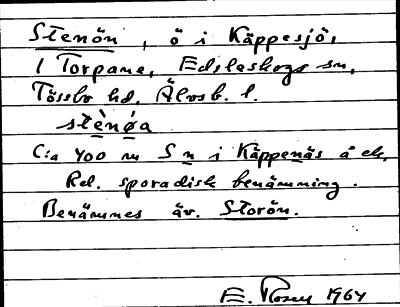 Stenön, ö i Käppesjö,
1 Torpane, Edsleskogs sn,
Tössbo hd, Älvsb. l.
stènǿa
C:a 400 m S n i Käppenäs å ek.
Rel. sporadisk benämning.
Benämnes äv. Storön.
E. Rosen 1964